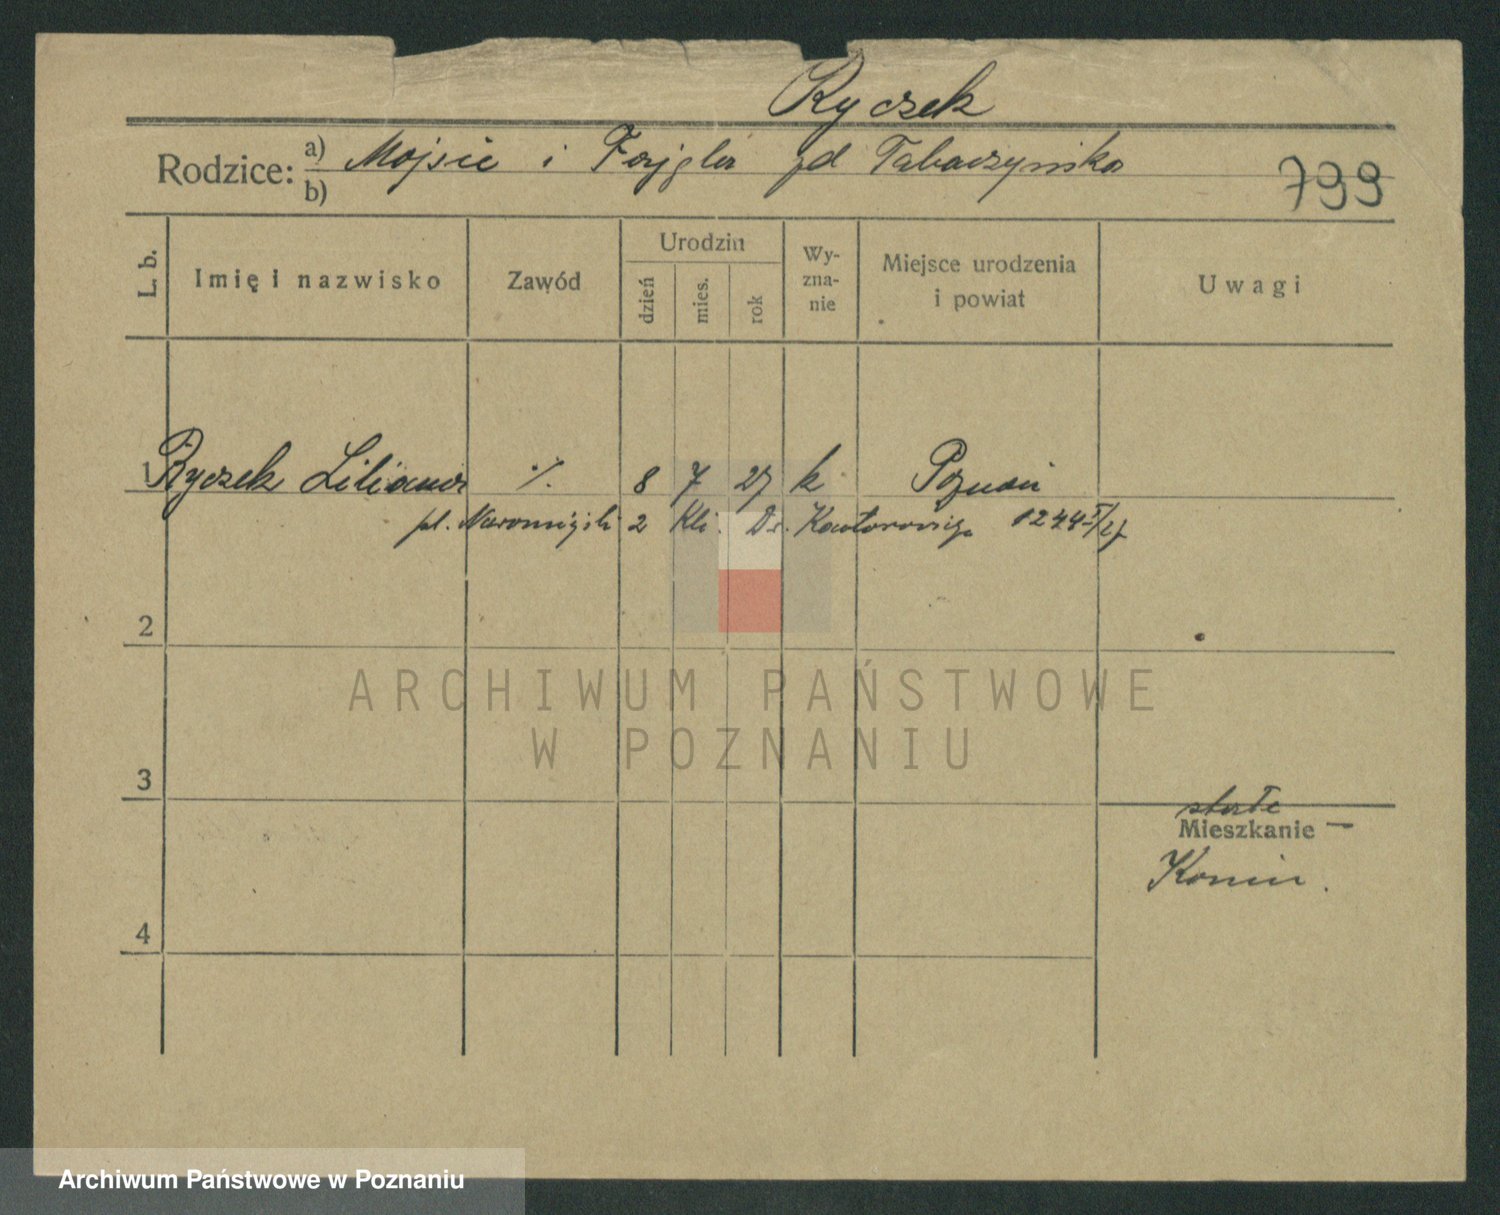 Ryczek
Rodzice: a) Mojsie i Fajgla zd Tabaczyńska
b)
799
L. b. Imię i nazwisko Zawód Urodzin dzień mies. rok Wy-zna-nie Miejsce urodzenia i powiat Uwagi
1 Ryczek Liliana ·/. 8 7 27 k Poznań
pl. Nowomiejski 2 Kli. Dr. Kantorowicza 1244 I/27
2
ARCHIWUM PAŃSTWOWE
W POZNANIU
3
stałe
Mieszkanie —
Konin.
4
Archiwum Państwowe w Poznaniu